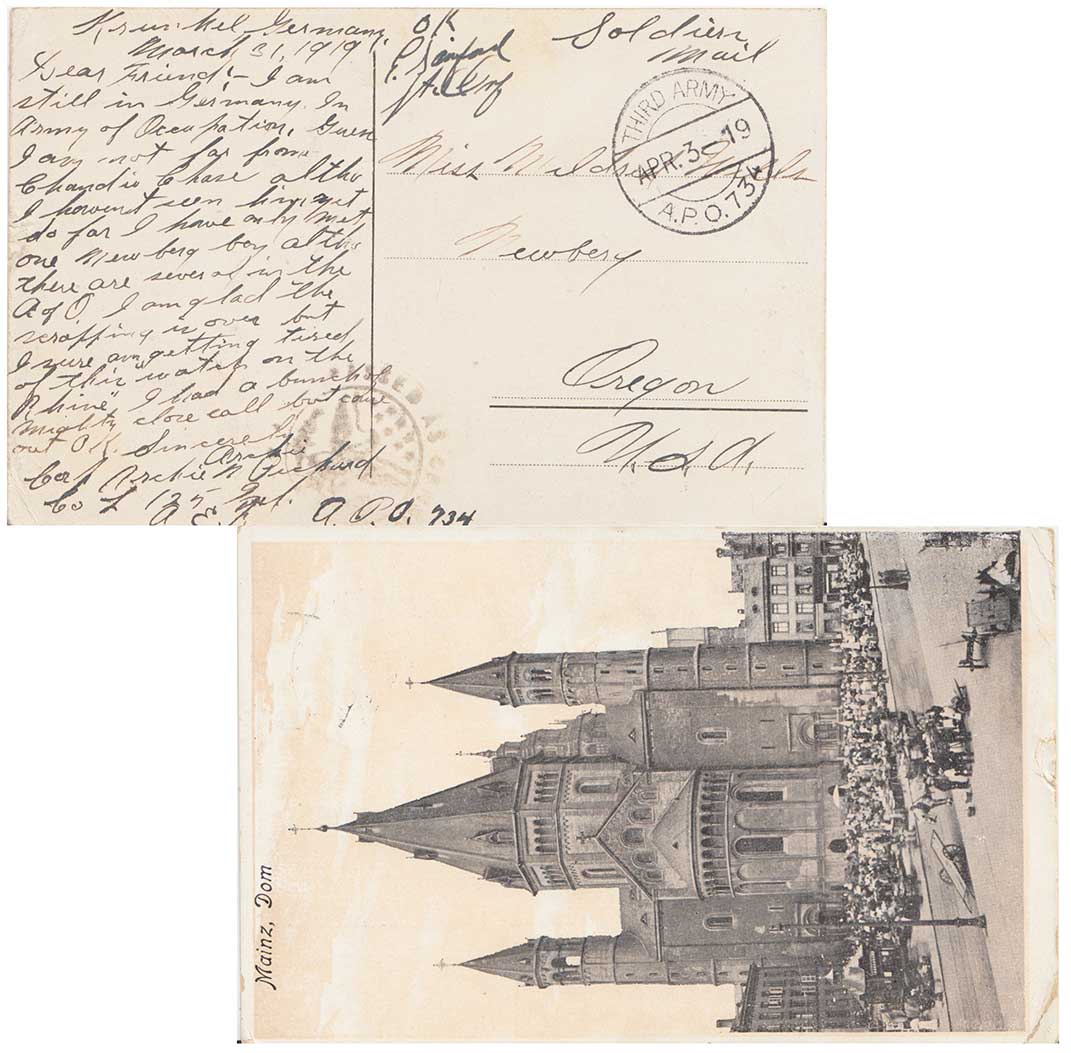 Krunkel Germany
March 31, 1919.
Dear Friend:- I am
still in Germany. In
Army of Occupation. Guess
I am not far from
Chase altho
I havent seen him yet
So far I have only met
one Newberg boy altho
there are several in the
A of O. I am glad the
scrapping is over but
I sure am getting tired
of this "watch on the
Rhine". I had a bunch of
mighty close call but came
out O.K. Sincerely
Archie
Corp Archie N
Co L 125 Inf.
A.E.F. A.P.O. 734
OK
Soldiers
Mail
THIRD ARMY
APR. 3 19
A.P.O. 734
Miss Mildred
Newberg
Oregon
U.S.A.
Mainz, Dom